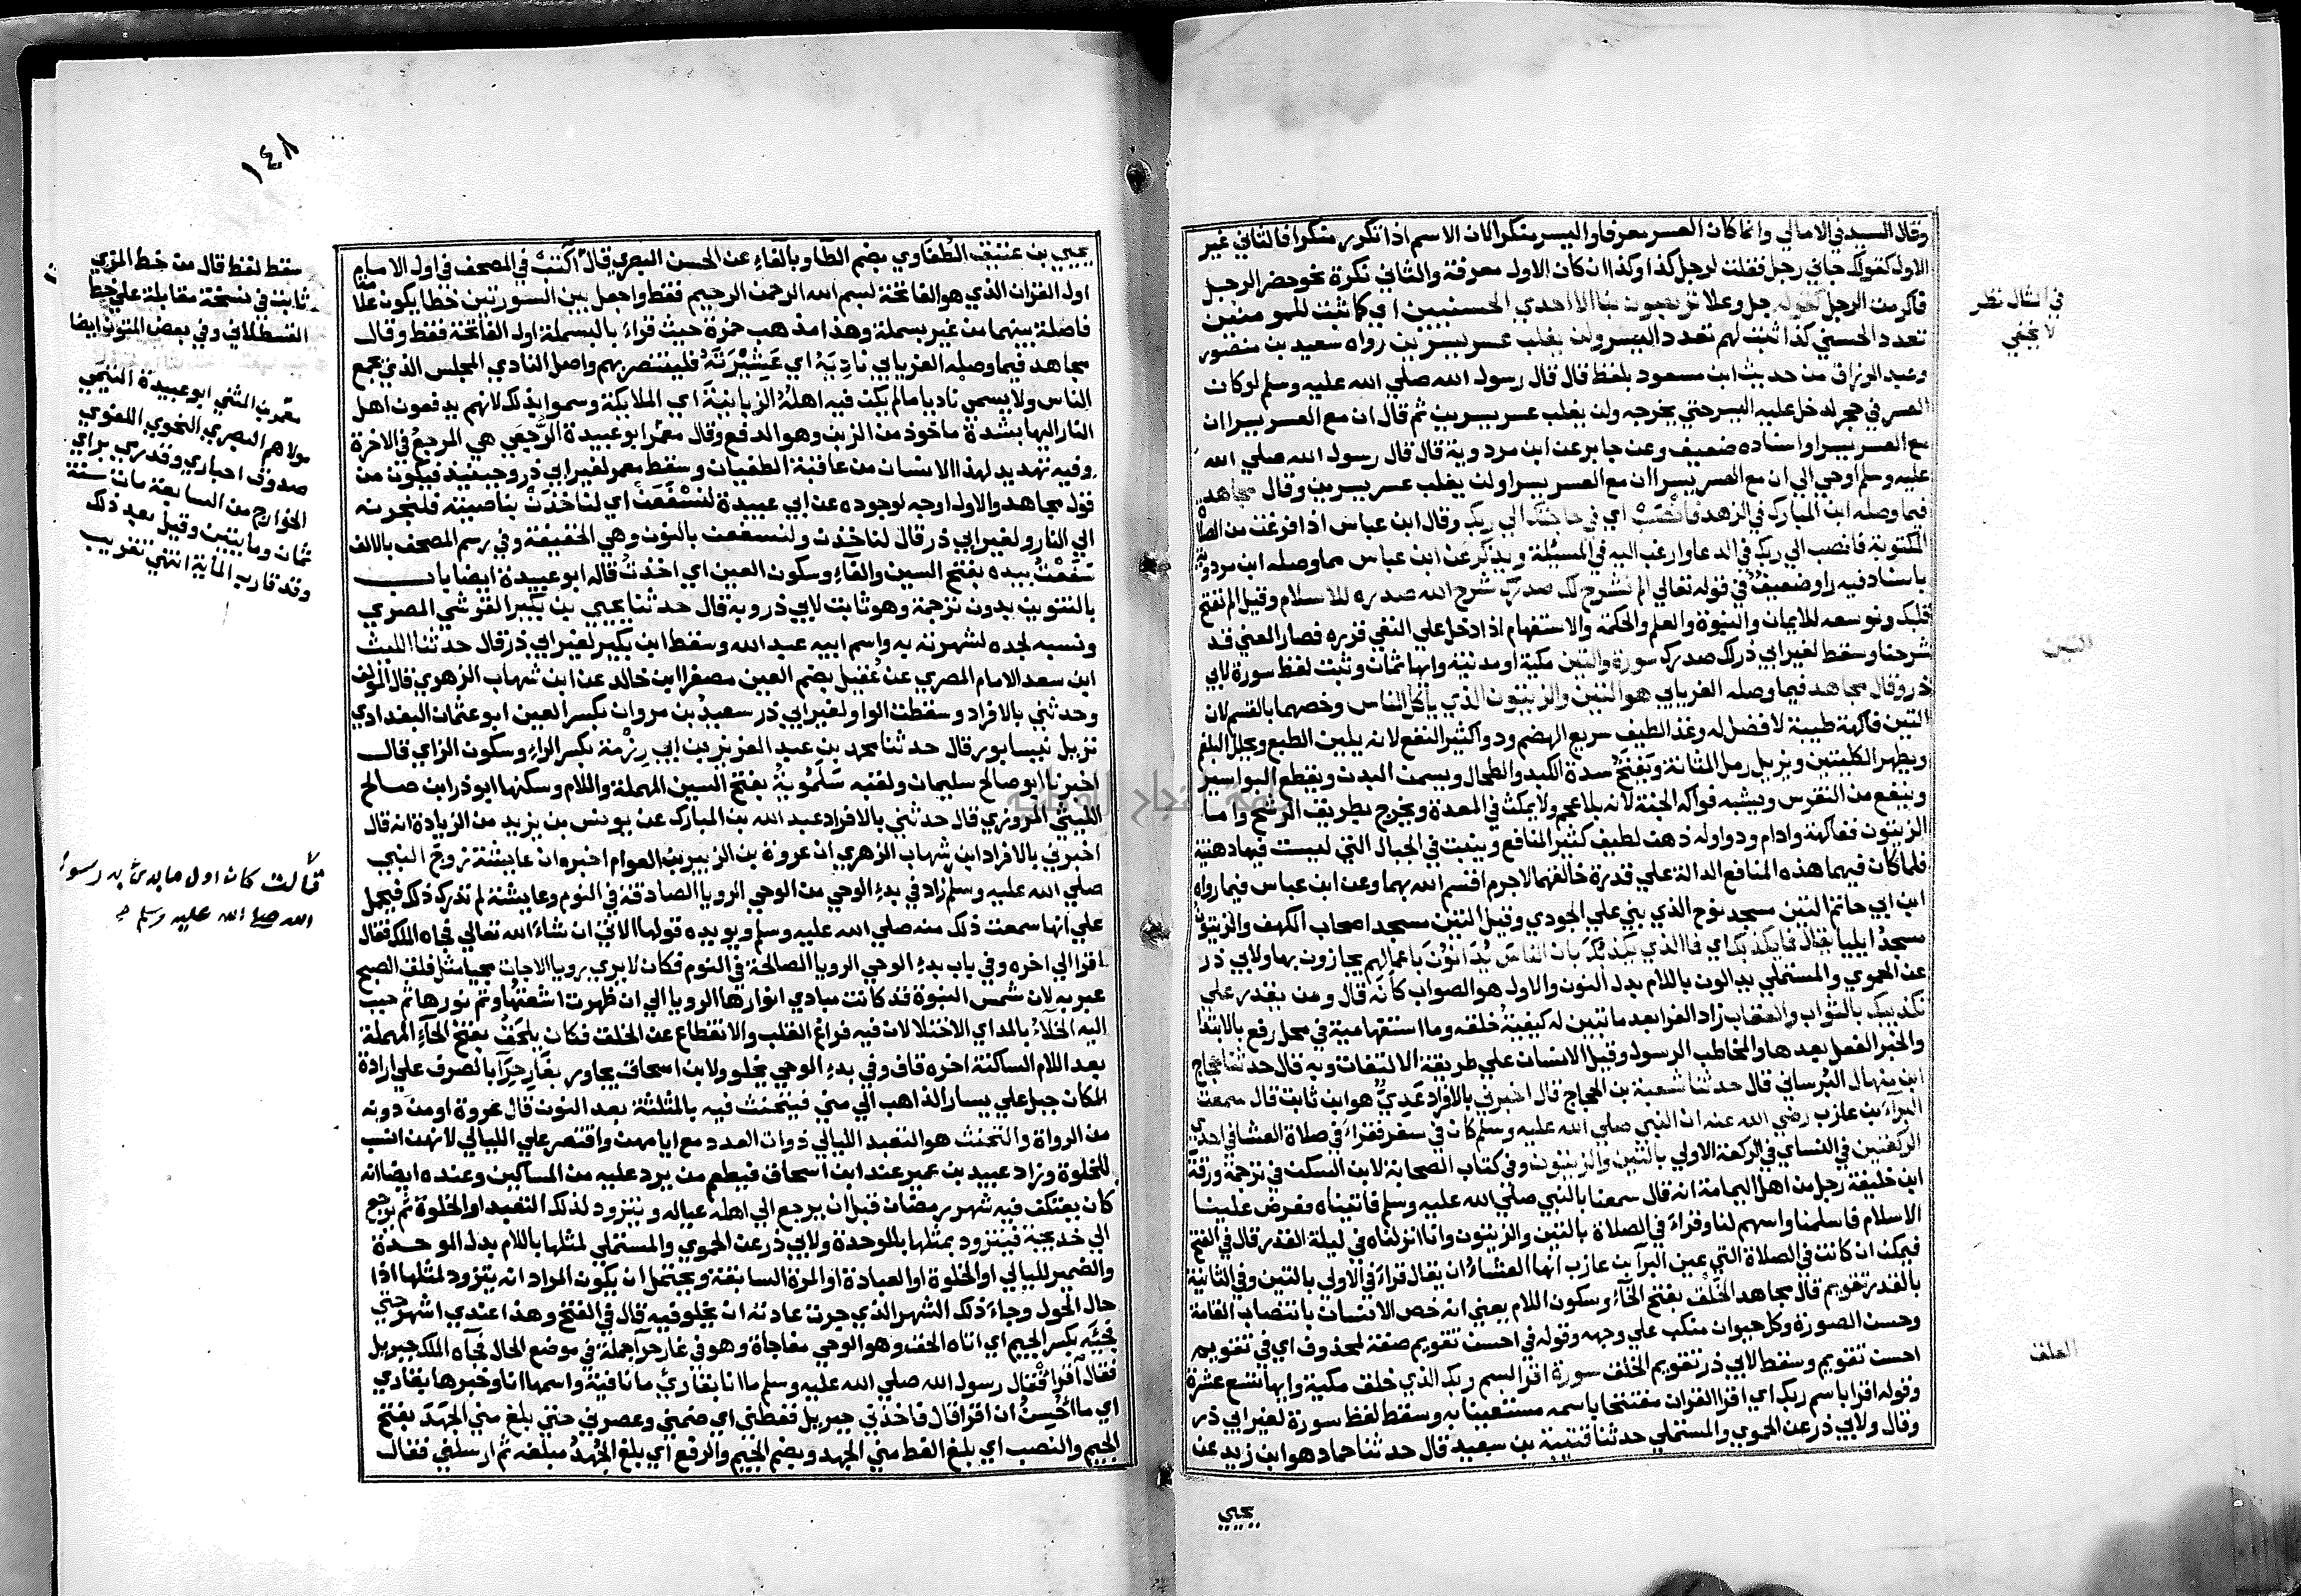 وقال السيد في الامالي وانما كان العسر معرفا واليسر منكرا لان الاسم اذا تكرر منكرا فالثاني غير
الاول كقولك جاني رجل فقلت لرجل كذا وكذا ان كان الاول معرفة والثاني نكرة نحو حضر الرجل
فاكرمت الرجل كقوله جل وعلا تربصون بنا الا احدي الحسنيين اي كما ثبت للمومنين
تعدد الحسني كذا ثبت لهم تعدد اليسر ولن يغلب عسر يسرين رواه سعيد بن منصور
وعبد الرزاق من حديث ابن مسعود بلفظ قال قال رسول الله صلي الله عليه وسلم لو كان
العسر في جحر لدخل عليه اليسر حتي يخرجه ولن يغلب عسر يسرين ثم قال ان مع العسر يسرا ان
مع العسر يسرا واسناده ضعيف وعن جابر عن ابن مردوية قال قال رسول الله صلي الله
عليه وسلم اوحي الي ان مع العسر يسرا ان مع العسر يسرا ولن يغلب عسر يسرين وقال مجاهد
فيما وصله ابن المبارك في الزهد فانصب اي في حاجتك الي ربك وقال ابن عباس اذا فرغت من الصلاة
المكتوبة فانصب الي ربك في الدعا وارغب اليه في المسئلة ويذكر عن ابن عباس مما وصله ابن مردوية
باسناد فيه راو ضعيف في قوله تعالي الم نشرح لك صدرك شرح الله صدره للاسلام وقيل الم نفتح
قلبك ونوسعه للايمان والنبوة والعلم والحكمة والاستفهام اذا دخل علي النفي قرره فصار المعني قد
شرحنا وسقط لغير ابي ذر لك صدرك سورة والتين مكية او مدنية وايها ثمان وثبت لفظ سورة لابي
ذر وقال مجاهد فيما وصله الفريابي هو التين والزيتون الذي ياكل الناس وخصهما بالقسم لان
التين فاكهة طيبة لا فضل له وغذا لطيف سريع الهضم ودوا كثير النفع لانه يلين الطبع ويحلل البلغم
ويطهر الكليتين ويزيل رمل المثانة ويفتح سدة الكبد والطحال ويسمن البدن ويقطع البواسير
وينفع من النقرس ويشبه فواكه الجنة لانه بلا عجم ولا يمكث في المعدة ويخرج بطريق الرشح واما
الزيتون ففاكهة وادام ودوا وله دهن لطيف كثير المنافع وينبت في الجبال التي ليست فيها دهنية
فلما كان فيهما هذه المنافع الدالة علي قدرة خالقهما لا جرم اقسم الله بهما وعن ابن عباس فيما رواه
ابن ابي حاتم التين مسجد نوح الذي بني علي الجودي وقيل التين مسجد اصحاب الكهف والزيتون
مسجد ايليا يقال فما يكذبك اي فما الذي يكذبك بان الناس يدانون باعمالهم يجازون بها ولابي ذر
عن الحموي والمستملي يدالون باللام بدل النون والاول هو الصواب كانه قال ومن يقدر علي
تكذيبك بالثواب والعقاب زاد الفرا بعد ما تبين له كيفية خلقه وما استفهامية في محل رفع بالابتدا
والخبر الفعل بعدها والمخاطب الرسول وقيل الانسان علي طريقة الالتفات وبه قال حدثنا حجاج
ابن منهال البرساني قال حدثنا شعبة بن الحجاج قال اخبرني بالافراد عدي هو ابن ثابت قال سمعت
البرآء بن عازب رضي الله عنه ان النبي صلي الله عليه وسلم كان في سفر فقراء في صلاة العشا في احدي
الركعتين في النساي في الركعة الاولي بالتين والزيتون وفي كتاب الصحابة لابن السكن في ترجمة ورقة
ابن خليفة رجل من اهل اليمامة انه قال سمعنا بالنبي صلي الله عليه وسلم فاتيناه فعرض علينا
الاسلام فاسلمنا واسهم لنا وقراء في الصلاة بالتين والزيتون وانا انزلناه في ليلة القدر قال في الفتح
فيمكن ان كانت في الصلاة التي عين البرآ بن عازب انها العشاء ان يقال قراء في الاولي بالتين وفي الثانية
بالقدر تقويم قال مجاهد الخلق بفتح الخاء وسكون اللام يعني انه خص الانسان بانتصاب القامة
وحسن الصورة وكل حيوان منكب علي وجهه وقوله في احسن تقويم صفة لمحذوف اي في تقويم
احسن تقويم وسقط لابي ذر تقويم الخلق سورة اقرا باسم ربك الذي خلق مكية وايها تسع عشرة
وقوله اقرا باسم ربك اي اقرا القران مفتتحا باسمه مستعينا به وسقط لفظ سورة لغير ابي ذر
وقال ولابي ذر عن الحموي والمستملي حدثنا قتيبة بن سعيد قال حدثنا حماد هو ابن زيد عن
يحيي
في المثال نظر
لا يخفي
التين
العلق
١٤٨
يحيي بن عتيق الطفاوي بضم الطآ وبالفاء عن الحسن البصري قال اكتب في المصحف في اول الامام
اول القران الذي هو الفاتحة بسم الله الرحمن الرحيم فقط واجعل بين السورتين خطا يكون علامة
فاصلة بينهما من غير بسملة وهذا مذهب حمزة حيث قراء بالبسملة اول الفاتحة فقط وقال
مجاهد فيما وصله الفريابي ناديه اي عشيرته فليستنصر بهم واصل النادي المجلس الذي يجمع
الناس ولا يسمي ناديا ما لم يكن فيه اهله الزبانية اي الملايكة وسموا بذلك لانهم يدفعون اهل
النار اليها بشدة ماخوذ من الزبن وهو الدفع وقال معمر ابو عبيدة الرجعي هي المرجع في الاخرة
وفيه تهديد لهذا الانسان من عاقبة الطغيان وسقط معمر لغير ابي ذر وحينئذ فيكون من
قول مجاهد والاول اوجه لوجوده عن ابي عبيدة لنسفعن اي لناخذن بناصيته فلنجرنه
الي النار ولغير ابي ذر قال لناخذن ولنسفعن بالنون وهي الخفيفة وفي رسم المصحف بالالف
سفعت بيده بفتح السين والفآء وسكون العين اي اخذت قاله ابو عبيدة ايضا باب
بالتنوين بدون ترجمة وهو ثابت لابي ذر وبه قال حدثنا يحيي بن بكير القرشي المصري
ونسبه لجده لشهرته به واسم ابيه عبد الله وسقط ابن بكير لغير ابي ذر قال حدثنا الليث
ابن سعد الامام المصري عن عقيل بضم العين مصغرا ابن خالد عن ابن شهاب الزهري قال المولف
وحدثني بالافراد وسقطت الواو لغير ابي ذر سعيد بن مروان بكسر العين ابو عثمان البغدادي
نزيل نيسابور قال حدثنا محمد بن عبد العزيز بن ابي رزمة بكسر الراء وسكون الزاي قال
اخبرنا ابو صالح سليمان ولقبه سلمويه بفتح السين المهملة واللام وسكنها ابو ذر ابن صالح
الليثي المروزي قال حدثني بالافراد عبد الله بن المبارك عن يونس بن يزيد من الزيادة انه قال
اخبرني بالافراد ابن شهاب الزهري ان عروة بن الزبير بن العوام اخبره ان عايشة زوج النبي
صلي الله عليه وسلم زاد في بدء الوحي من الوحي الرويا الصادقة في النوم وعايشة لم تدرك ذلك فيحمل
علي انها سمعت ذلك منه صلي الله عليه وسلم ويويده قولها الاتي ان شاء الله تعالي فجاه الملك فقال
اقرا الي اخره وفي باب بدء الوحي الرويا الصالحة في النوم فكان لا يري رويا الا جات مجيا مثل فلق الصبح
عبر به لان شمس النبوة قد كانت مبادي انوارها الرويا الي ان ظهرت اشعتها وتم نورها ثم حبب
اليه الخلآء بالمد اي الاختلا لان فيه فراغ القلب والانقطاع عن الخلق فكان يلحق بفتح الحآء المهملة
بعد اللام الساكنة اخره قاف وفي بدء الوحي يخلو ولابن اسحاق يجاور بغار حرآ بالصرف علي ارادة
المكان جبل علي يسار الذاهب الي مني فيتحنث فيه بالمثلثة بعد النون قال عروة او من دونه
من الرواة والتحنث هو التعبد الليالي ذوات العدد مع ايامهن واقتصر علي الليالي لانهن انسب
للخلوة وزاد عبيد بن عمير عند ابن اسحاق فيطعم من يرد عليه من المساكين وعنده ايضا انه
كان يعتكف فيه شهر رمضان قبل ان يرجع الي اهله عياله ويتزود لذلك التعبد او الخلوة ثم يرجع
الي خديجة فيتزود بمثلها بالموحدة ولابي ذر عن الحموي والمستملي لمثلها باللام بدل الموحدة
والضمير لليالي او الخلوة او العبادة او المرة السابقة ويحتمل ان يكون المراد انه يتزود لمثلها اذا
حال الحول وجاء ذلك الشهر الذي جرت عادته ان يخلو فيه قال في الفتح وهذا عندي اشهر حتي
فجئه بكسر الجيم اي اتاه الحق وهو الوحي مفاجاة وهو في غار حرآ جملة في موضع الحال فجاه الملك جبريل
فقال اقرا فقال رسول الله صلي الله عليه وسلم ما انا بقارئ ما نافية واسمها انا وخبرها بقاري
اي ما احسن ان اقرا قال فاخذني جبريل فغطني اي ضمني وعصرني حتي بلغ مني الجهد بفتح
الجيم والنصب اي بلغ الغط مني الجهد وبضم الجيم والرفع اي بلغ الجهد مبلغه ثم ارسلني فقال
سقط لفظ قال من خط المزي
ثابت في نسخة مقابلة علي خط
القسطلاني وفي بعض المتون ايضا
معمر بن المثني ابو عبيدة التيمي
مولاهم البصري النحوي اللغوي
صدوق اخباري وقد رمي براي
الخوارج من السابعة مات سنة
ثمان ومايتين وقيل بعد ذلك
وقد قارب الماية انتهي تقريب
قالت كان اول ما بدئ به رسول
الله صلى الله عليه وسلم